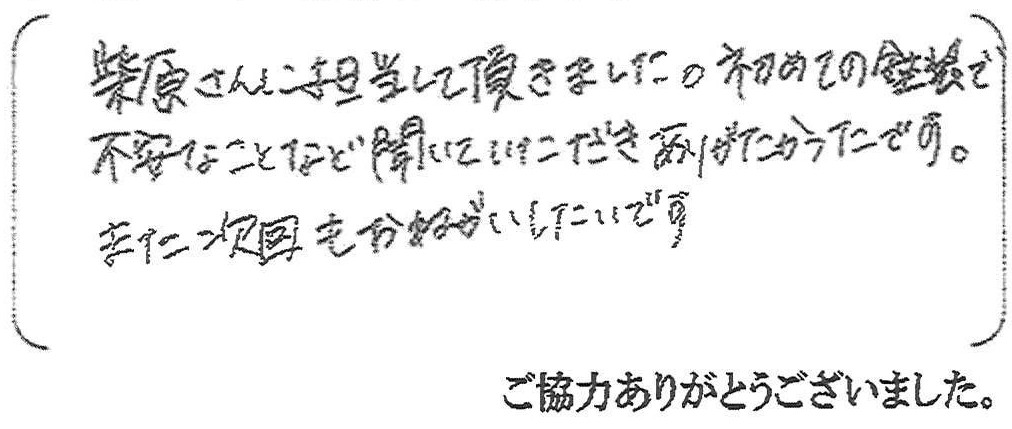 柴原さんに担当して頂きました。初めての塗装で
不安なことなど聞いていただきありがたかったです。
また次回もおねがいしたいです
ご協力ありがとうございました。